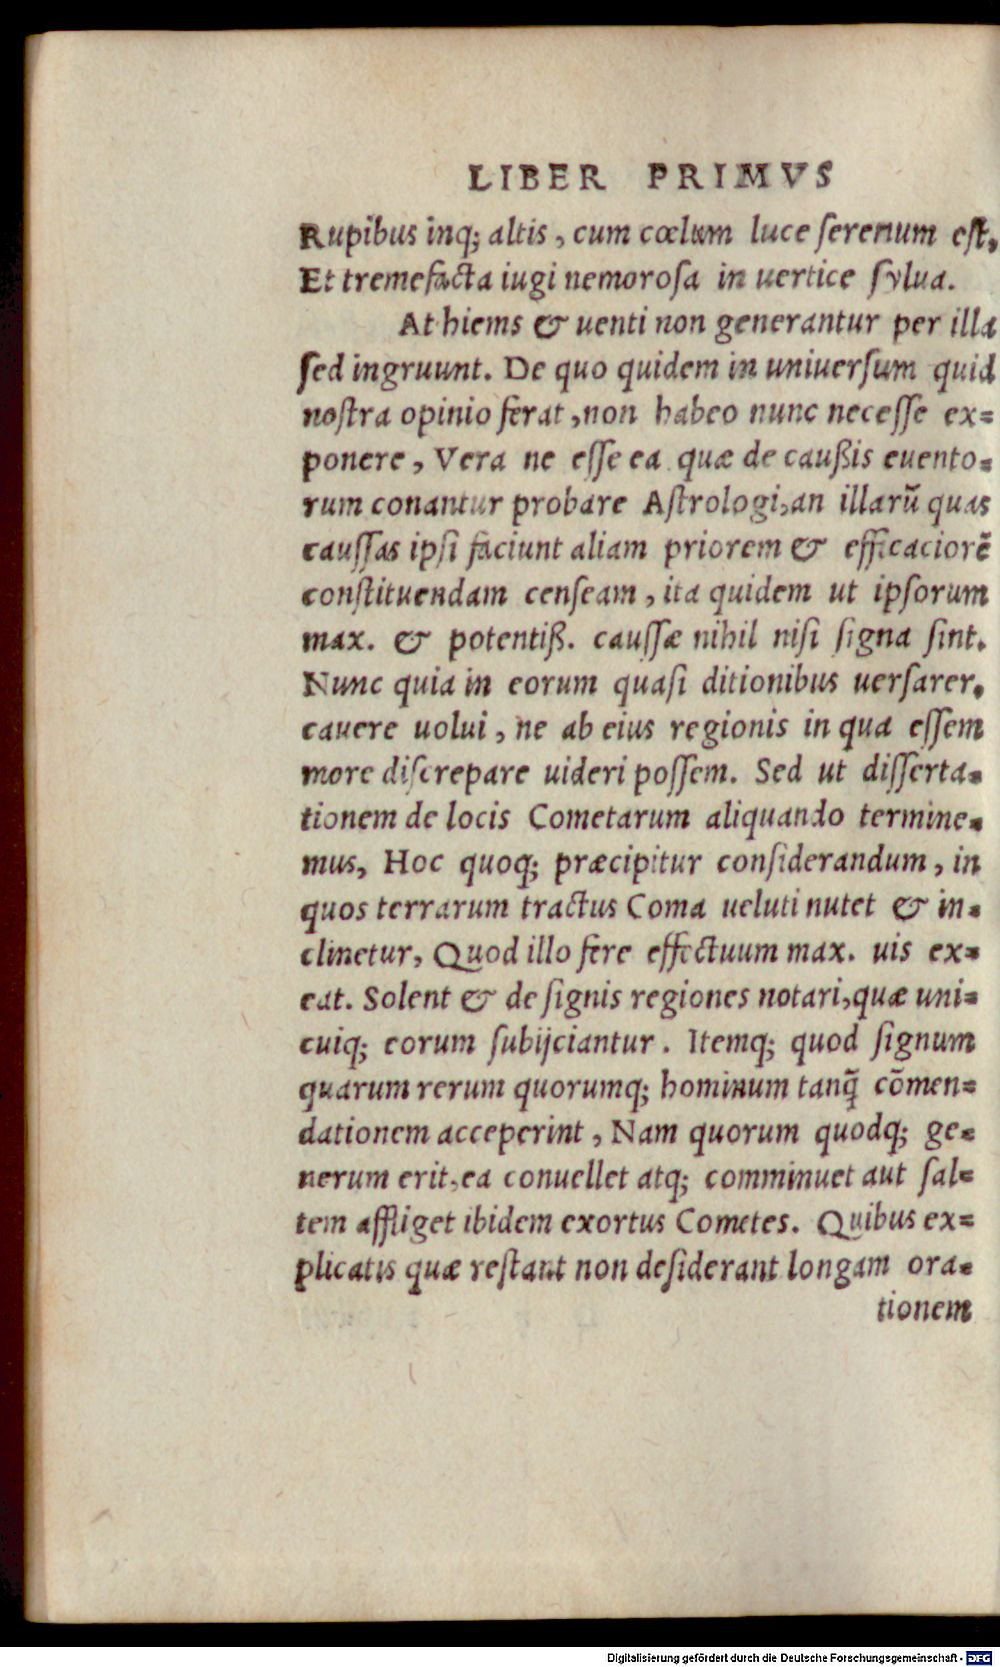 LIBER PRIMVS
Rupibus inq; altis, cum cœlum luce ſerenum eſt,
Et tremefacta iugi nemoroſa in uertice ſylua.
At hiems & uenti non generantur per illa
ſed ingruunt. De quo quidem in uniuerſum quid
noſtra opinio ferat, non habeo nunc neceſſe ex=
ponere, Vera ne eſſe ea quæ de caußis euento=
rum conantur probare Aſtrologi, an illarū quas
cauſſas ipſi faciunt aliam priorem & efficaciorē
conſtituendam cenſeam, ita quidem ut ipſorum
max. & potentiß. cauſſæ nihil niſi ſigna ſint.
Nunc quia in eorum quaſi ditionibus uerſarer,
cauere uolui, ne ab eius regionis in qua eſſem
more diſcrepare uideri poſſem. Sed ut diſſerta=
tionem de locis Cometarum aliquando termine=
mus, Hoc quoq; præcipitur conſiderandum, in
quos terrarum tractus Coma ueluti nutet & in=
clinetur, Quod illo fere effectuum max. uis ex=
eat. Solent & de ſignis regiones notari, quæ uni=
cuiq; eorum ſubijciantur. Itemq; quod ſignum
quarum rerum quorumq; hominum tanq̃ cōmen=
dationem acceperint, Nam quorum quodq; ge=
nerum erit, ea conuellet atq; comminuet aut ſal=
tem affliget ibidem exortus Cometes. Quibus ex=
plicatis quæ reſtant non deſiderant longam ora=
tionem
Digitalisierung gefördert durch die Deutsche Forschungsgemeinschaft - DFG